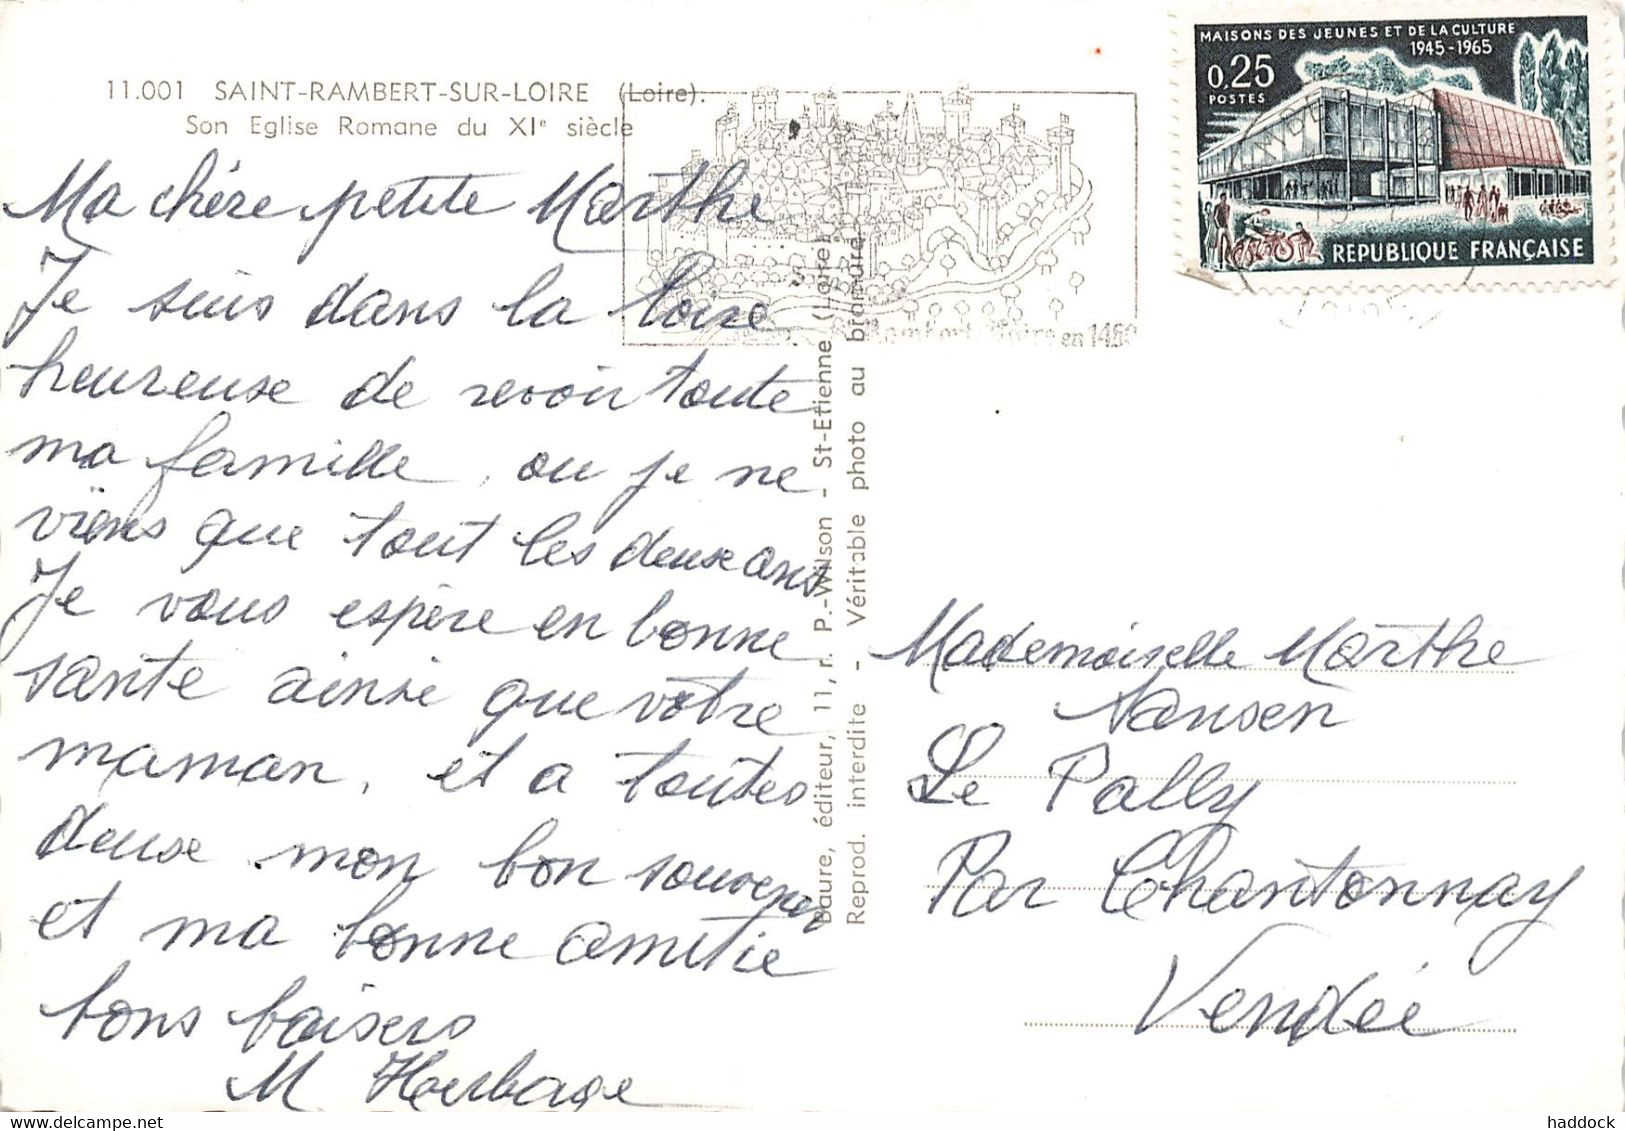 11.001 SAINT-RAMBERT-SUR-LOIRE (Loire).
Son Eglise Romane du XIe siècle
Ma chère petite Marthe
Je suis dans la Loire
heureuse de revoir toute
ma famille, ou je ne
viens que tout les deux ans
Je vous espère en bonne
santé ainsi que votre
maman, et a toutes
deux mon bon souvenir
et ma bonne amitie
bons baisers
M Herbage
Baure, éditeur, 11, r. P.-Wilson - St-Etienne (Loire)
Reprod. interdite - Véritable photo au bromure
en 1450
MAISONS DES JEUNES ET DE LA CULTURE
1945-1965
0,25
POSTES
REPUBLIQUE FRANÇAISE
Mademoiselle Marthe
Nansen
Le Pally
Par Chantonnay
Vendée
haddock